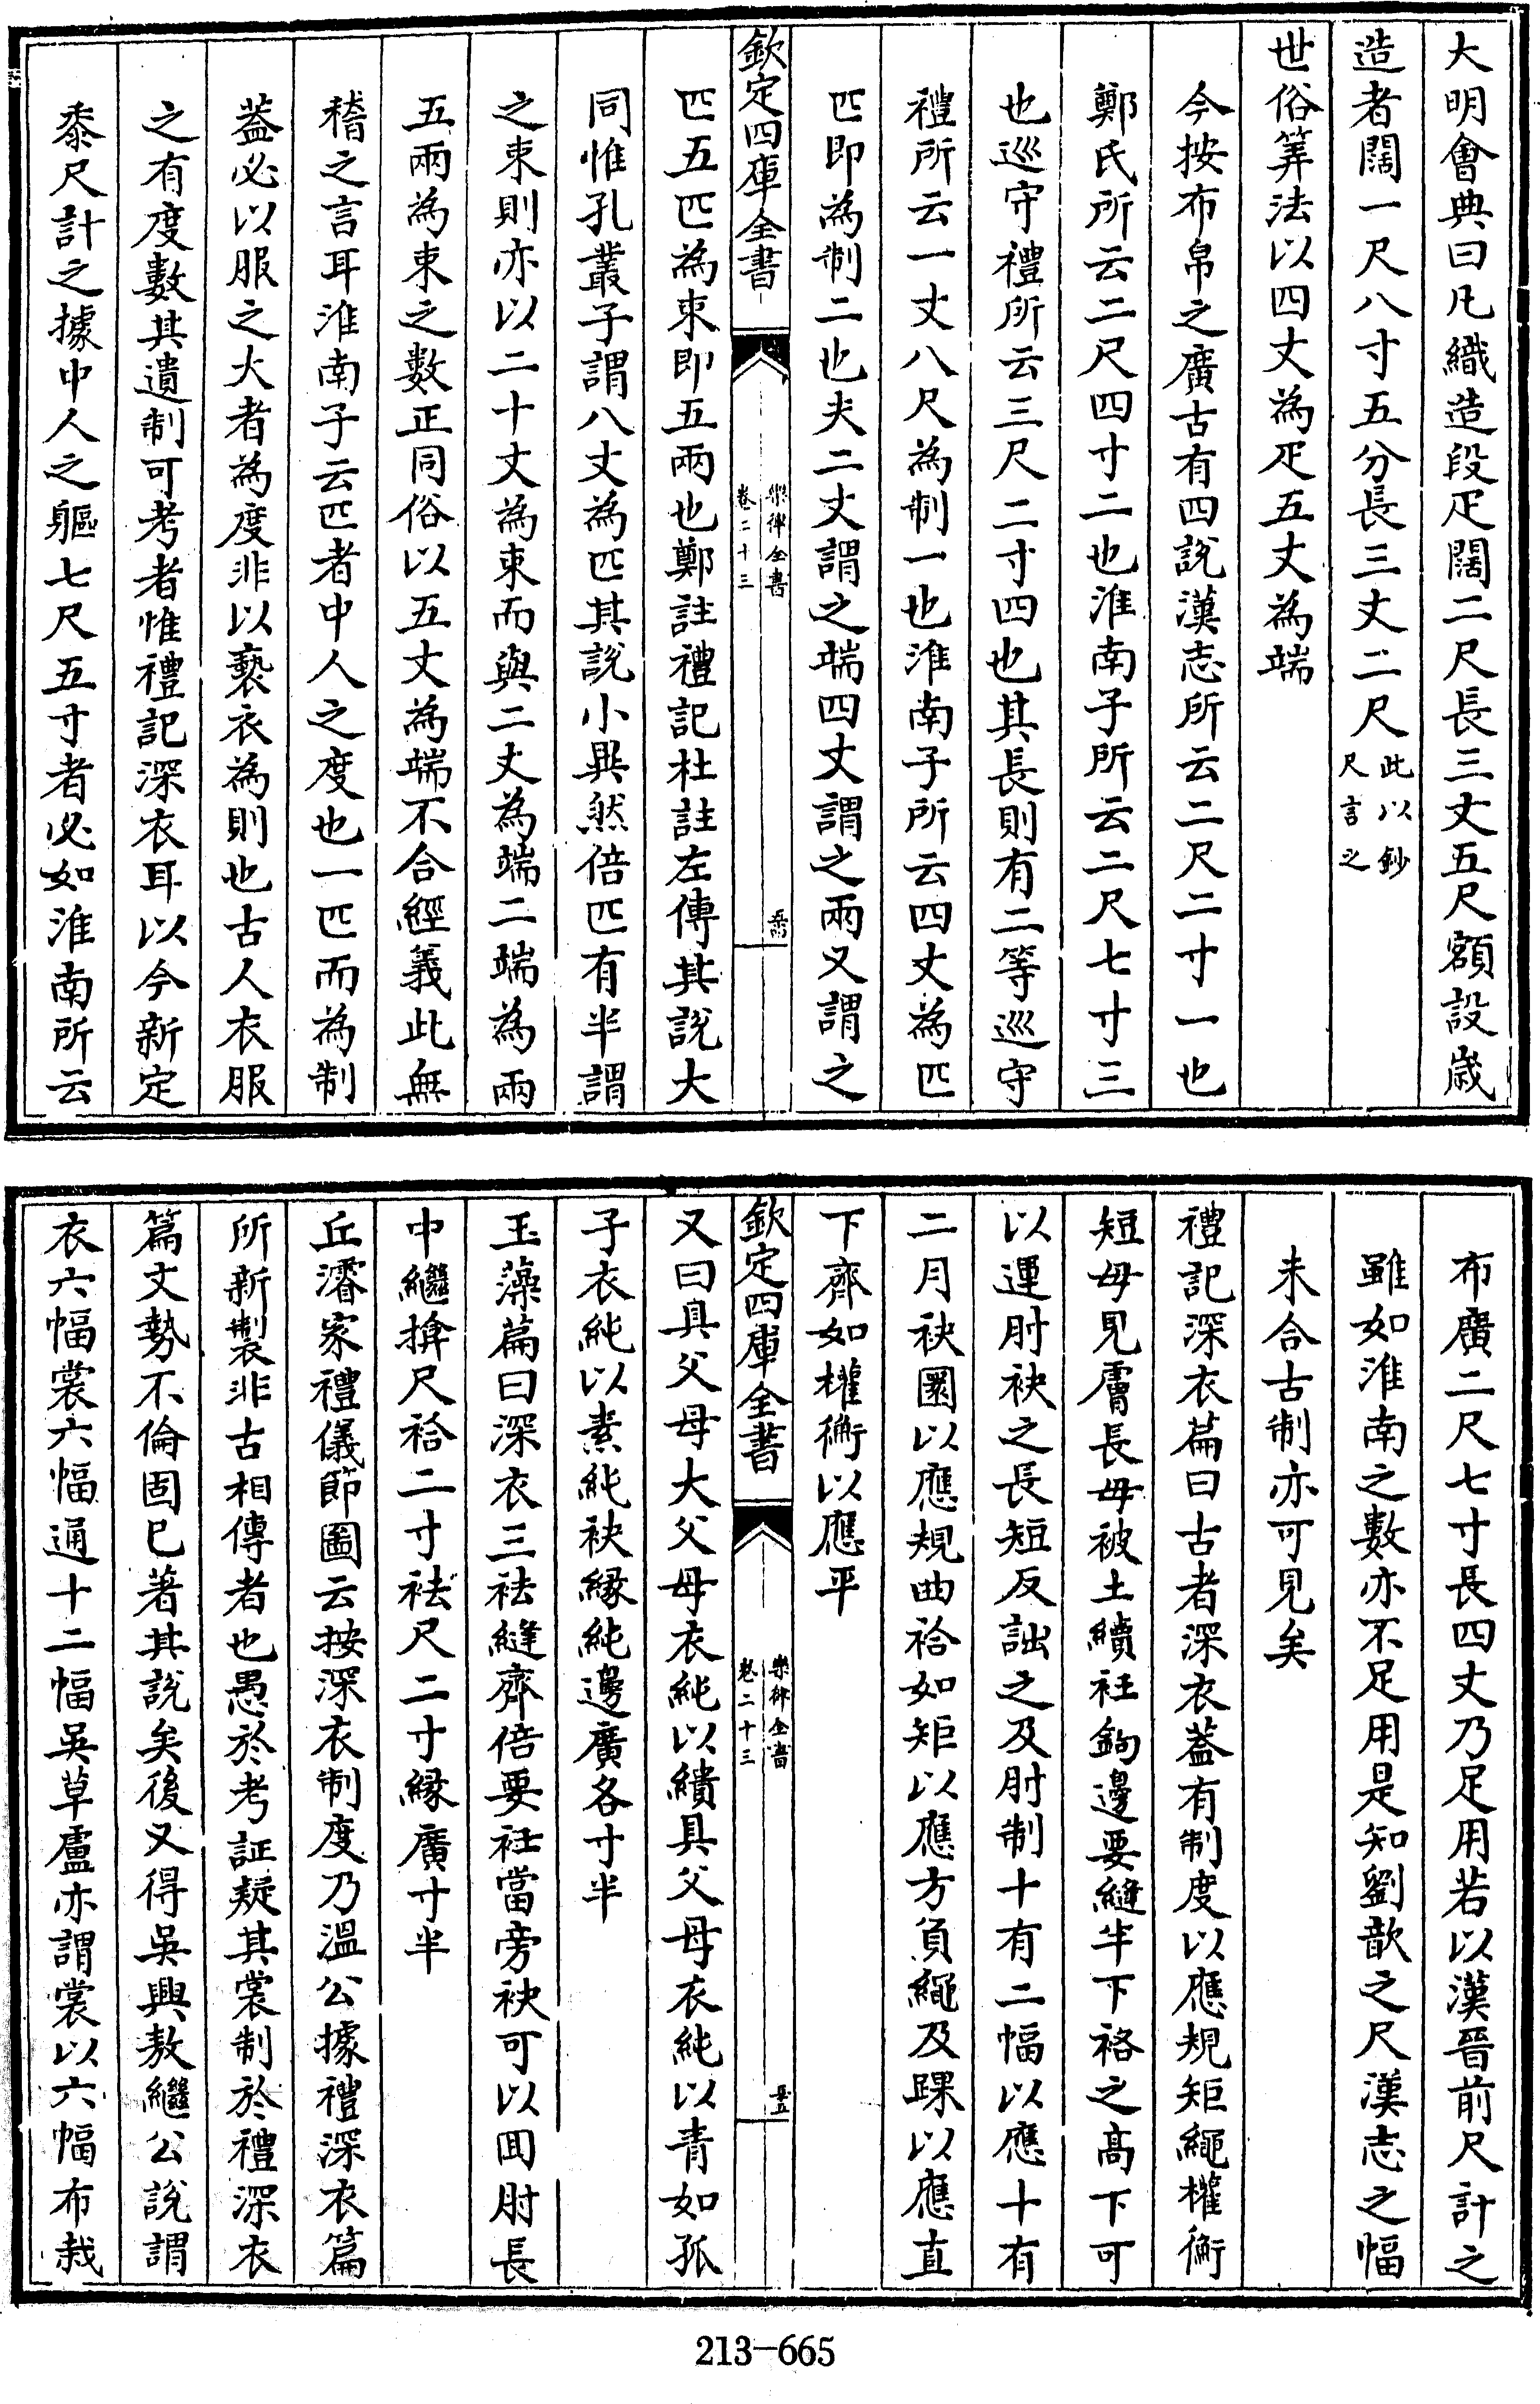 大明會典曰凡織造段疋闊二尺長三丈五尺額設歲
造者闊一尺八寸五分長三丈二尺此以鈔尺言之
世俗筭法以四丈為疋五丈為端
今按布帛之廣古有四說漢志所云二尺二寸一也
鄭氏所云二尺四寸二也淮南子所云二尺七寸三
也巡守禮所云三尺二寸四也其長則有二等巡守
禮所云一丈八尺為制一也淮南子所云四丈為匹
匹即為制二也夫二丈謂之端四丈謂之兩又謂之
欽定四庫全書
樂律全書
卷二十三
匹五匹為束即五兩也鄭註禮記杜註左傳其說大
同惟孔叢子謂八丈為匹其說小異然倍匹有半謂
之束則亦以二十丈為束而與二丈為端二端為兩
五兩為束之數正同俗以五丈為端不合經義此無
稽之言耳淮南子云匹者中人之度也一匹而為制
蓋必以服之大者為度非以褻衣為則也古人衣服
之有度數其遺制可考者惟禮記深衣耳以今新定
黍尺計之據中人之軀七尺五寸者必如淮南所云
布廣二尺七寸長四丈乃足用若以漢晉前尺計之
雖如淮南之數亦不足用是知劉歆之尺漢志之幅
未合古制亦可見矣
禮記深衣篇曰古者深衣蓋有制度以應規矩繩權衡
短毋見膚長毋被土續衽鉤邊要縫半下袼之高下可
以運肘袂之長短反詘之及肘制十有二幅以應十有
二月袂圜以應規曲袷如矩以應方負繩及踝以應直
下齊如權衡以應平
欽定四庫全書
樂律全書
卷二十三
又曰具父母大父母衣純以繢具父母衣純以青如孤
子衣純以素純袂緣純邊廣各寸半
玉藻篇曰深衣三袪縫齊倍要衽當旁袂可以回肘長
中繼揜尺袷二寸袪尺二寸緣廣寸半
丘濬家禮儀節圖云按深衣制度乃溫公據禮深衣篇
所新製非古相傳者也愚於考証疑其裳制於禮深衣
篇文勢不倫固已著其說矣後又得吳興敖繼公說謂
衣六幅裳六幅通十二幅吳草廬亦謂裳以六幅布裁
213-665